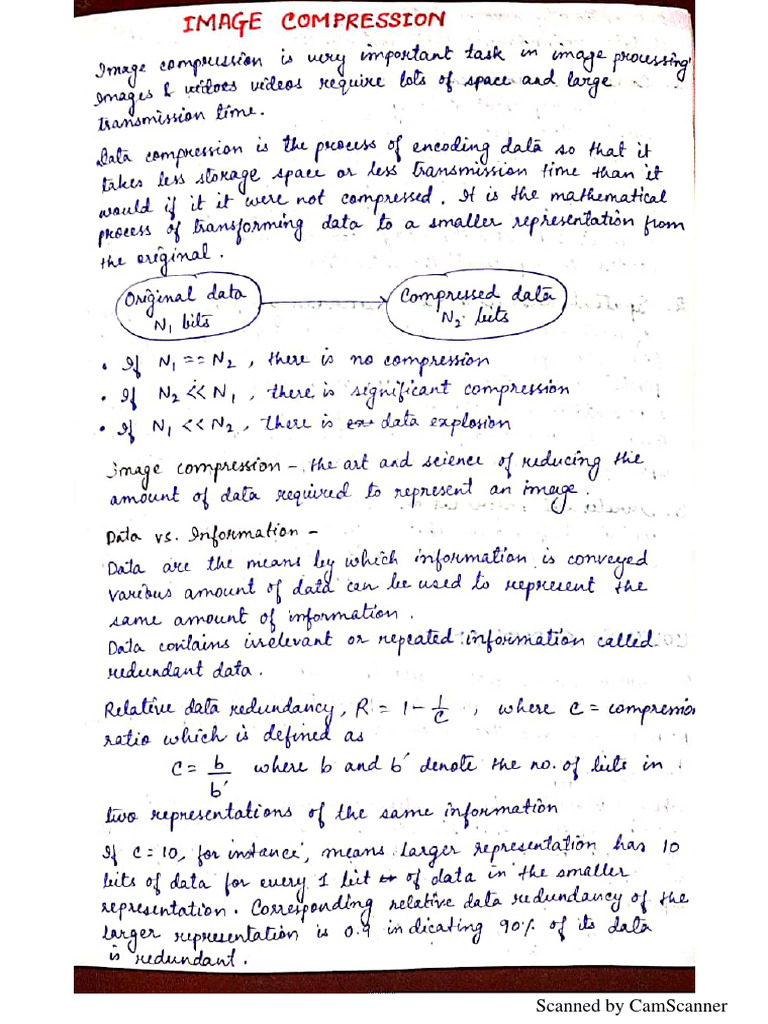 IMAGE COMPRESSION
Image compression is very important task in image processing
Images & vidoes videos require lots of space and large
transmission time.
Data compression is the process of encoding data so that it
takes less storage space or less transmission time than it
would if it it were not compressed. It is the mathematical
process of transforming data to a smaller representation from
the original.
Original data
N₁ bits
Compressed data
N₂ bits
• If N₁ == N₂, there is no compression
• If N₂ << N₁, there is significant compression
• If N₁ << N₂, there is data explosion
Image compression - the art and science of reducing the
amount of data required to represent an image.
Data vs. Information -
Data are the means by which information is conveyed
various amount of data can be used to represent the
same amount of information.
Data contains irrelevant or repeated information called
redundant data.
Relative data redundancy, R = 1 - 1/C, where C = compression
ratio which is defined as
C = b/b' where b and b' denote the no. of bits in
two representations of the same information
If C = 10, for instance, means larger representation has 10
bits of data for every 1 bit of data in the smaller
representation. Corresponding relative data redundancy of the
larger representation is 0.9 indicating 90% of its data
is redundant.
Scanned by CamScanner